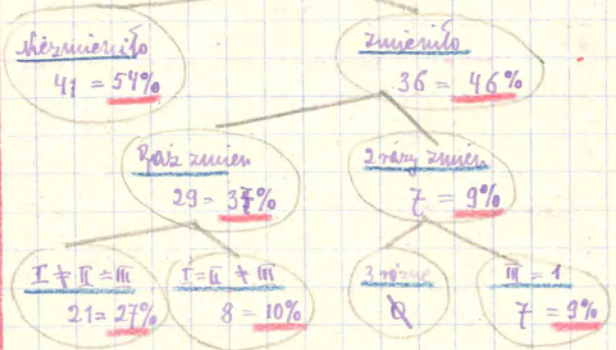 Niezmieniło
41 = 54%
zmieniło
36 = 46%
Raz zmien
29 = 37%
2 razy zmien
7 = 9%
I ≠ II = III
21 = 27%
I = II ≠ III
8 = 10%
3 różne
0
III = 1
7 = 9%